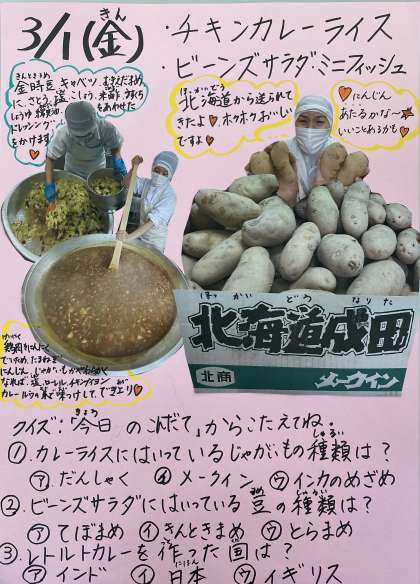 3/1(金)
・チキンカレーライス
・ビーンズサラダ・ミニフィッシュ
金時豆 キャベツ、むきえだまめ
に、さとう、塩、こしょう、米酢、うすくち
しょうゆ、綿実油、をあわせた
ドレッシング
をかけます
北海道から送られて
きたよ ホクホクおいしい
ですよ
にんじん
あたるかな～
いいことあるかも
北海道成田
北商
メークイン
鶏肉、にんにく
でいため、たまねぎ
にんじん、じゃがいもがやわらかく
なれば、塩、ローレル、チキンブイヨン
カレールウ 味つけして、できより
クイズ:「今日のこんだて」からこたえてね。
①.カレーライスにはいっているじゃがいもの種類は?
㋐だんしゃく ㋑メークイン ㋒インカのめざめ
②.ビーンズサラダにはいっている豆の種類は?
㋐てぼまめ ㋑きんときまめ ㋒とらまめ
③.レトルトカレーを作った国は?
㋐インド ㋑日本 ㋒イギリス